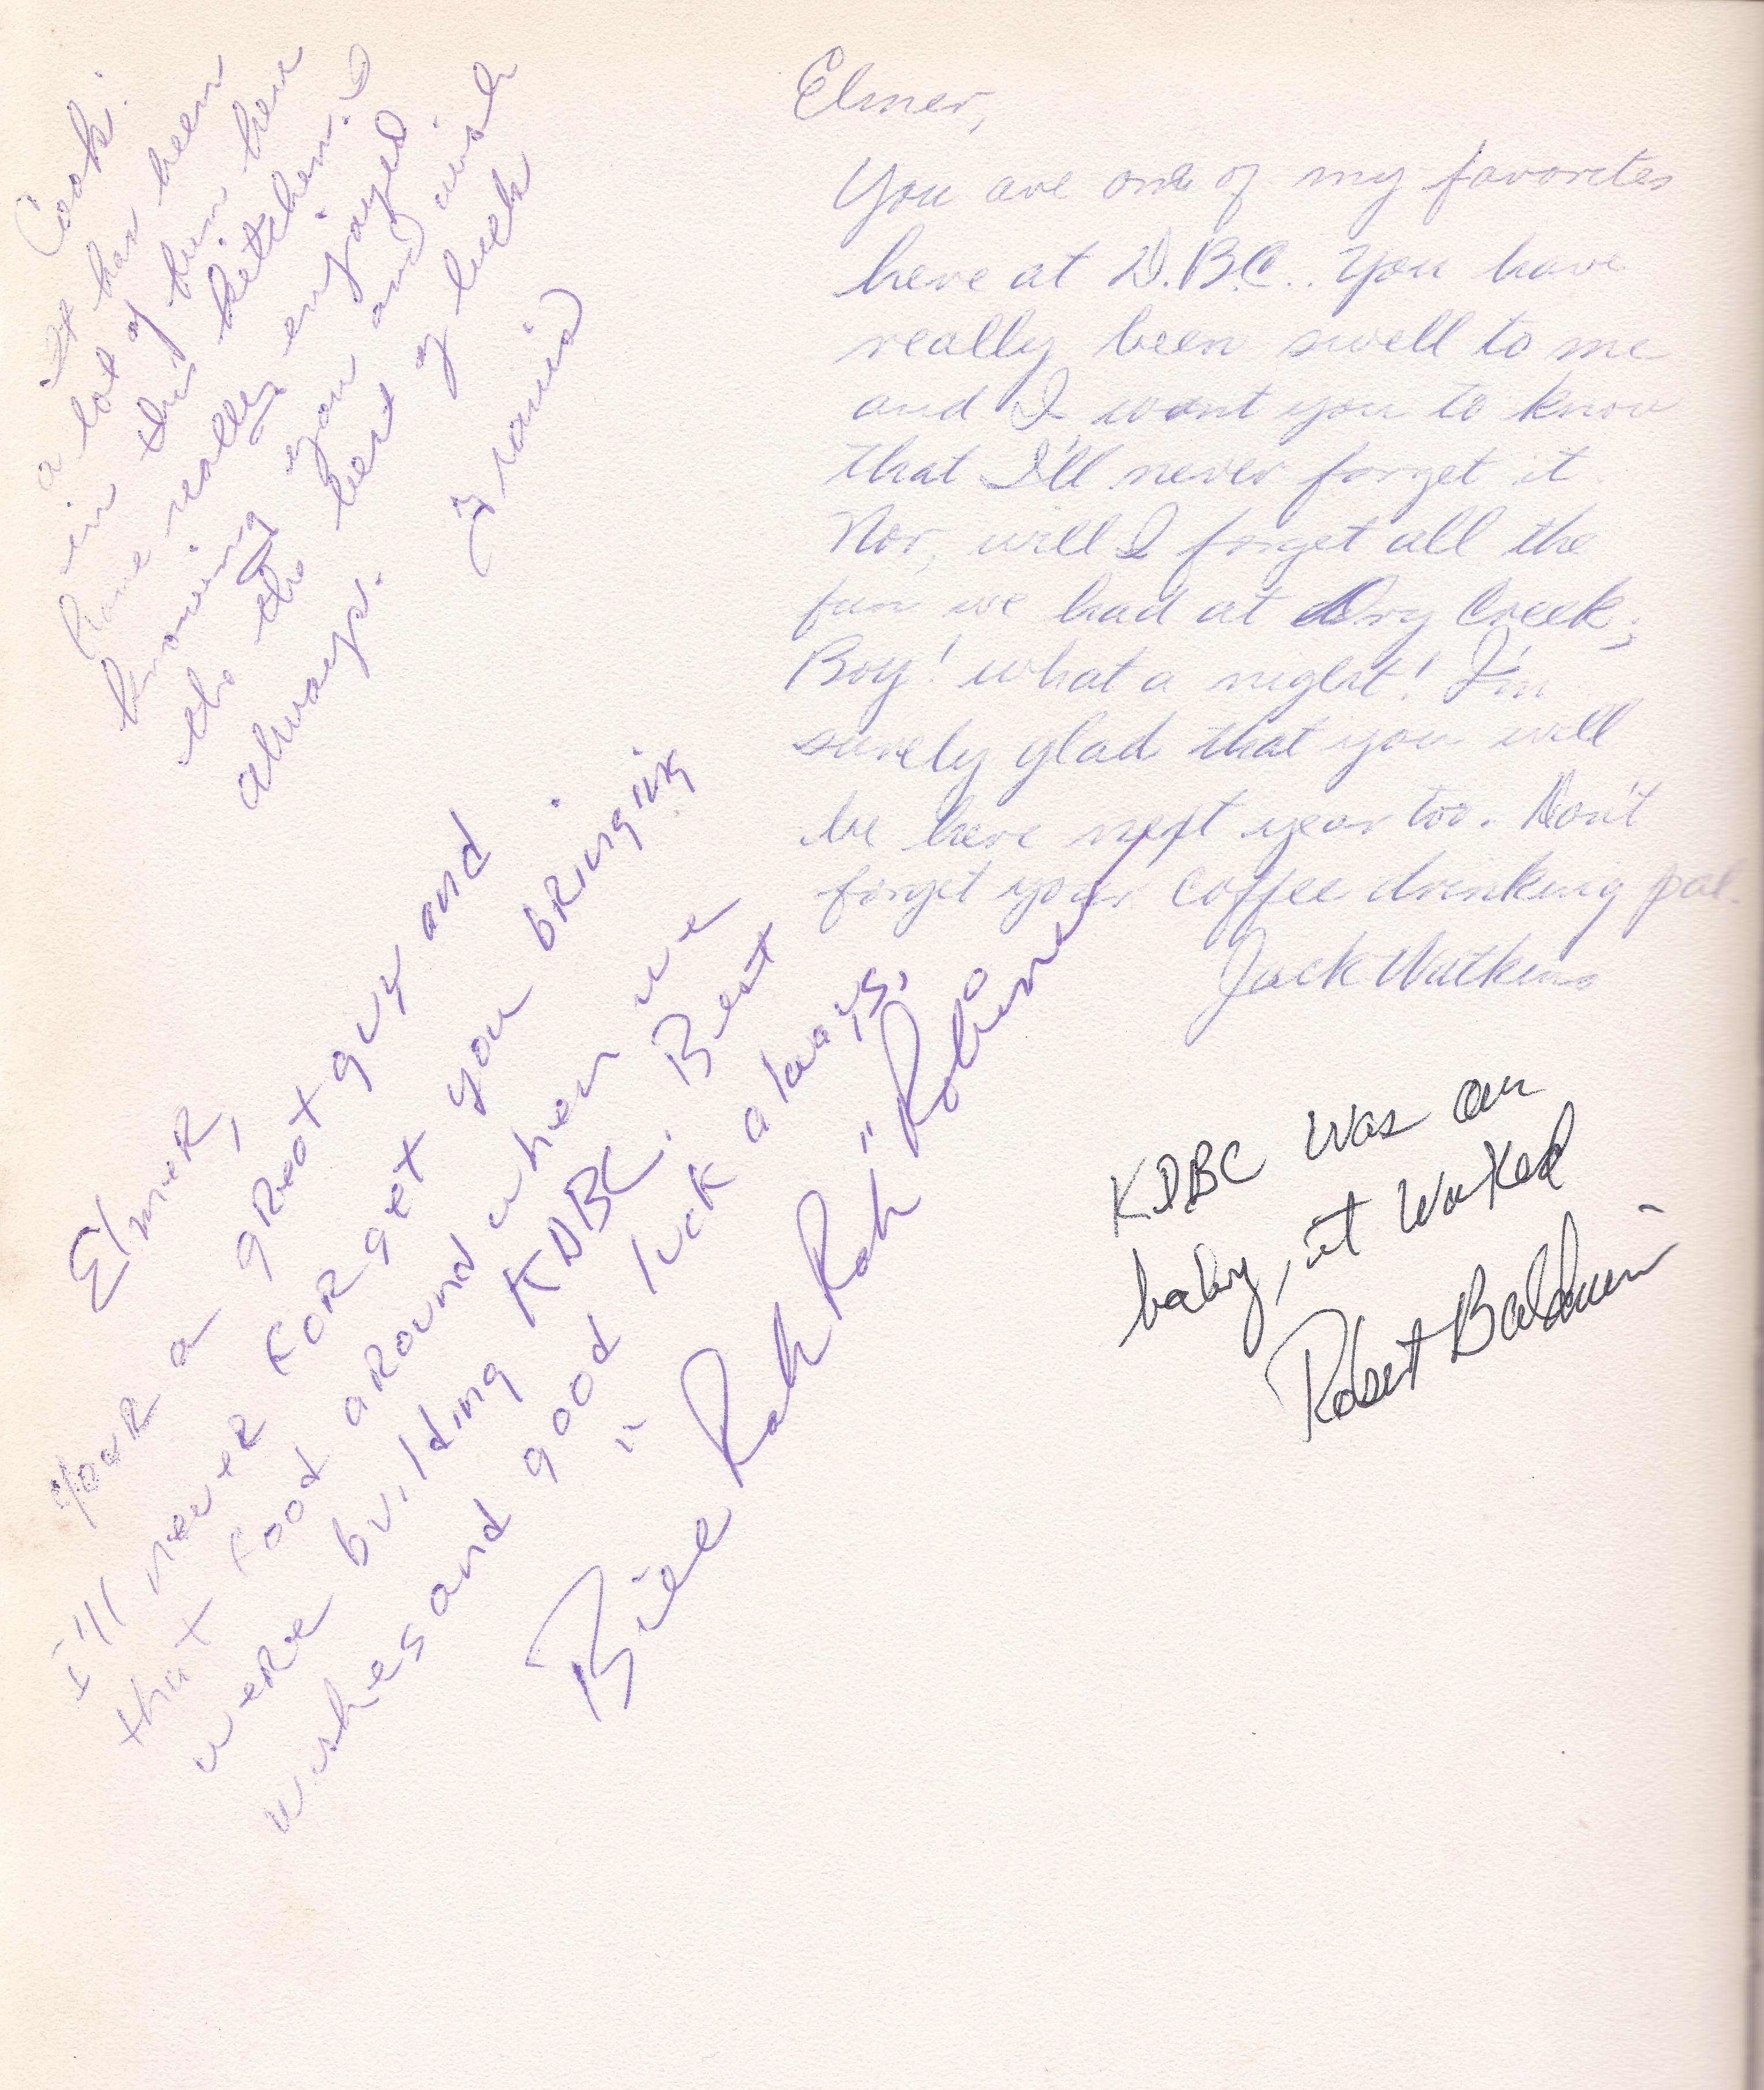 Cook:
It has been
a lot of fun here
in this kitchen. I
have really enjoyed
knowing you and wish
the best of luck
always.
Francis
Elmer,
You are one of my favorites
here at D.B.C.. You have
really been swell to me
and I want you to know
that I'll never forget it.
Nor, will I forget all the
fun we had at Dry Creek;
Boy! what a night! I'm
surely glad that you will
be here next year too. Don't
forget your coffee drinking pal.
Jack Watkins
Elmer,
Your a great guy and
I'll never forget you bringing
that food around when we
were building KDBC. Best
wishes and good luck always,
Bill "Rah Rah" Robinett
KDBC was our
baby, it worked
Robert Baldwin